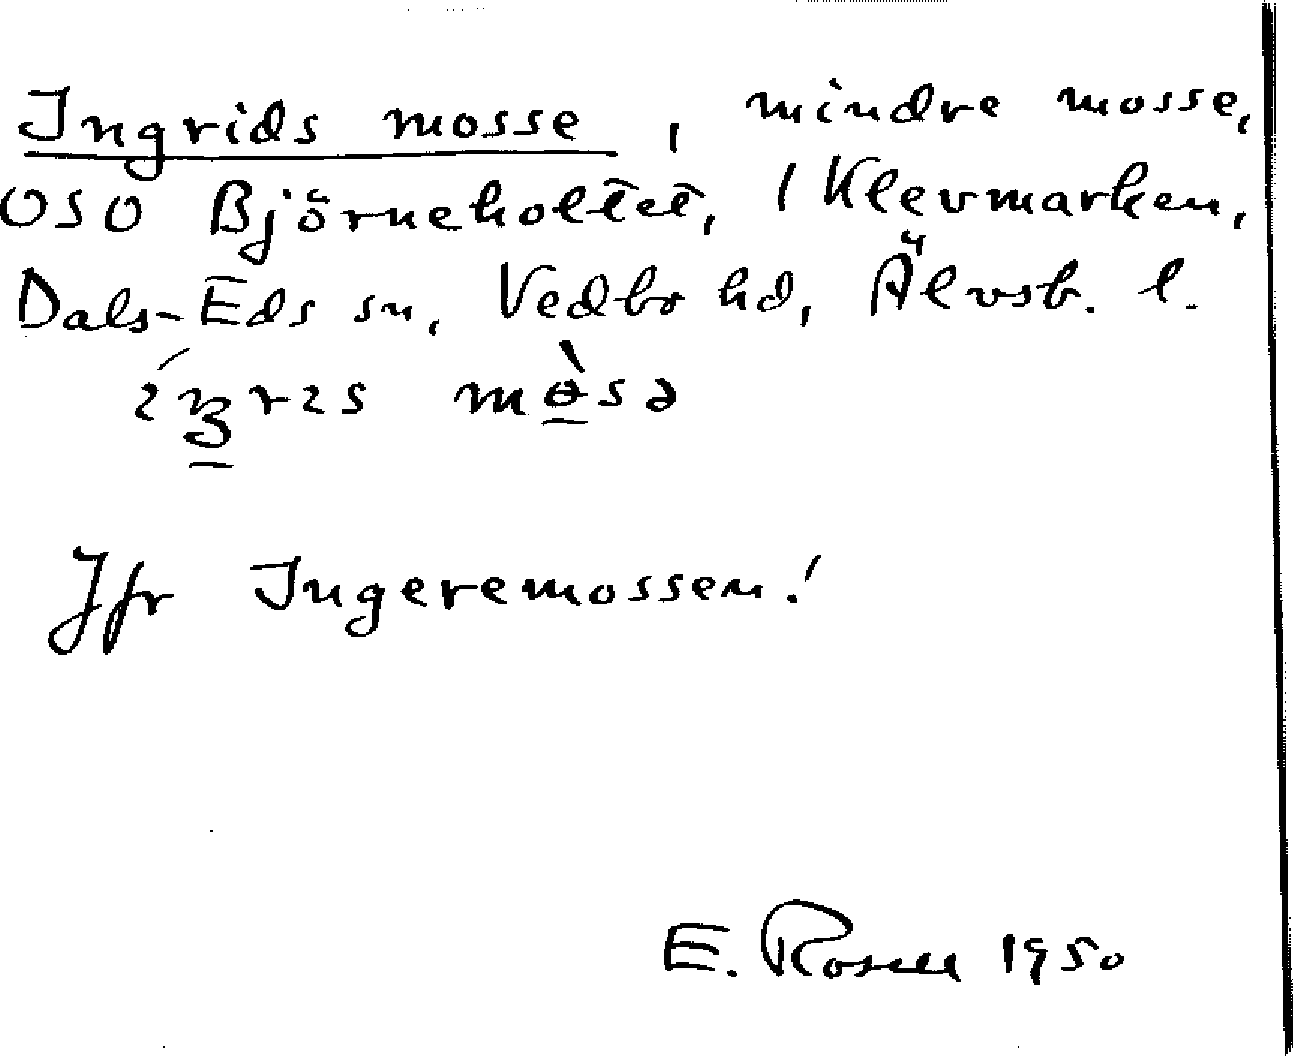 Ingrids mosse, mindre mosse,
OSO Björneholtet, 1 Klevmarken,
Dals-Eds sn, Vedbo hd, Älvsb. l.
Jfr Ingeremossen!
E. Rosell 1950